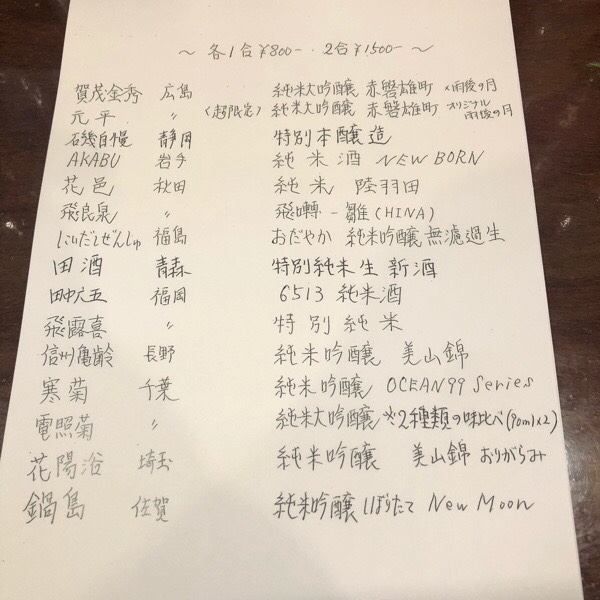 ～ 各1合￥800－ ・2合￥1500－ ～
賀茂金秀 広島 純米大吟醸 赤磐雄町 ×雨後の月
元平 〃 〈超限定〉純米大吟醸 赤磐雄町 オリジナル 雨後の月
磯自慢 静岡 特別本醸造
AKABU 岩手 純米酒 NEW BORN
花邑 秋田 純米 陸羽田
飛良泉 〃 飛囀 － 雛(HINA)
にいだしぜんしゅ 福島 おだやか 純米吟醸無濾過生
田酒 青森 特別純米生 新酒
田中六五 福岡 6513 純米酒
飛露喜 〃 特別純米
信州亀齢 長野 純米吟醸 美山錦
寒菊 千葉 純米吟醸 OCEAN99 Series
電照菊 〃 純米大吟醸 ※2種類の味比べ(90ml×2)
花陽浴 埼玉 純米吟醸 美山錦 おりがらみ
鍋島 佐賀 純米吟醸 しぼりたて New Moon